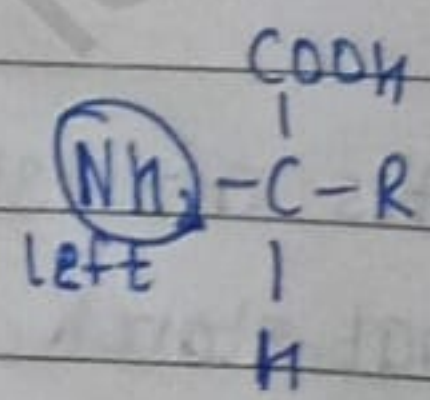 COOH
|
Nh2 - C - R
left
|
H